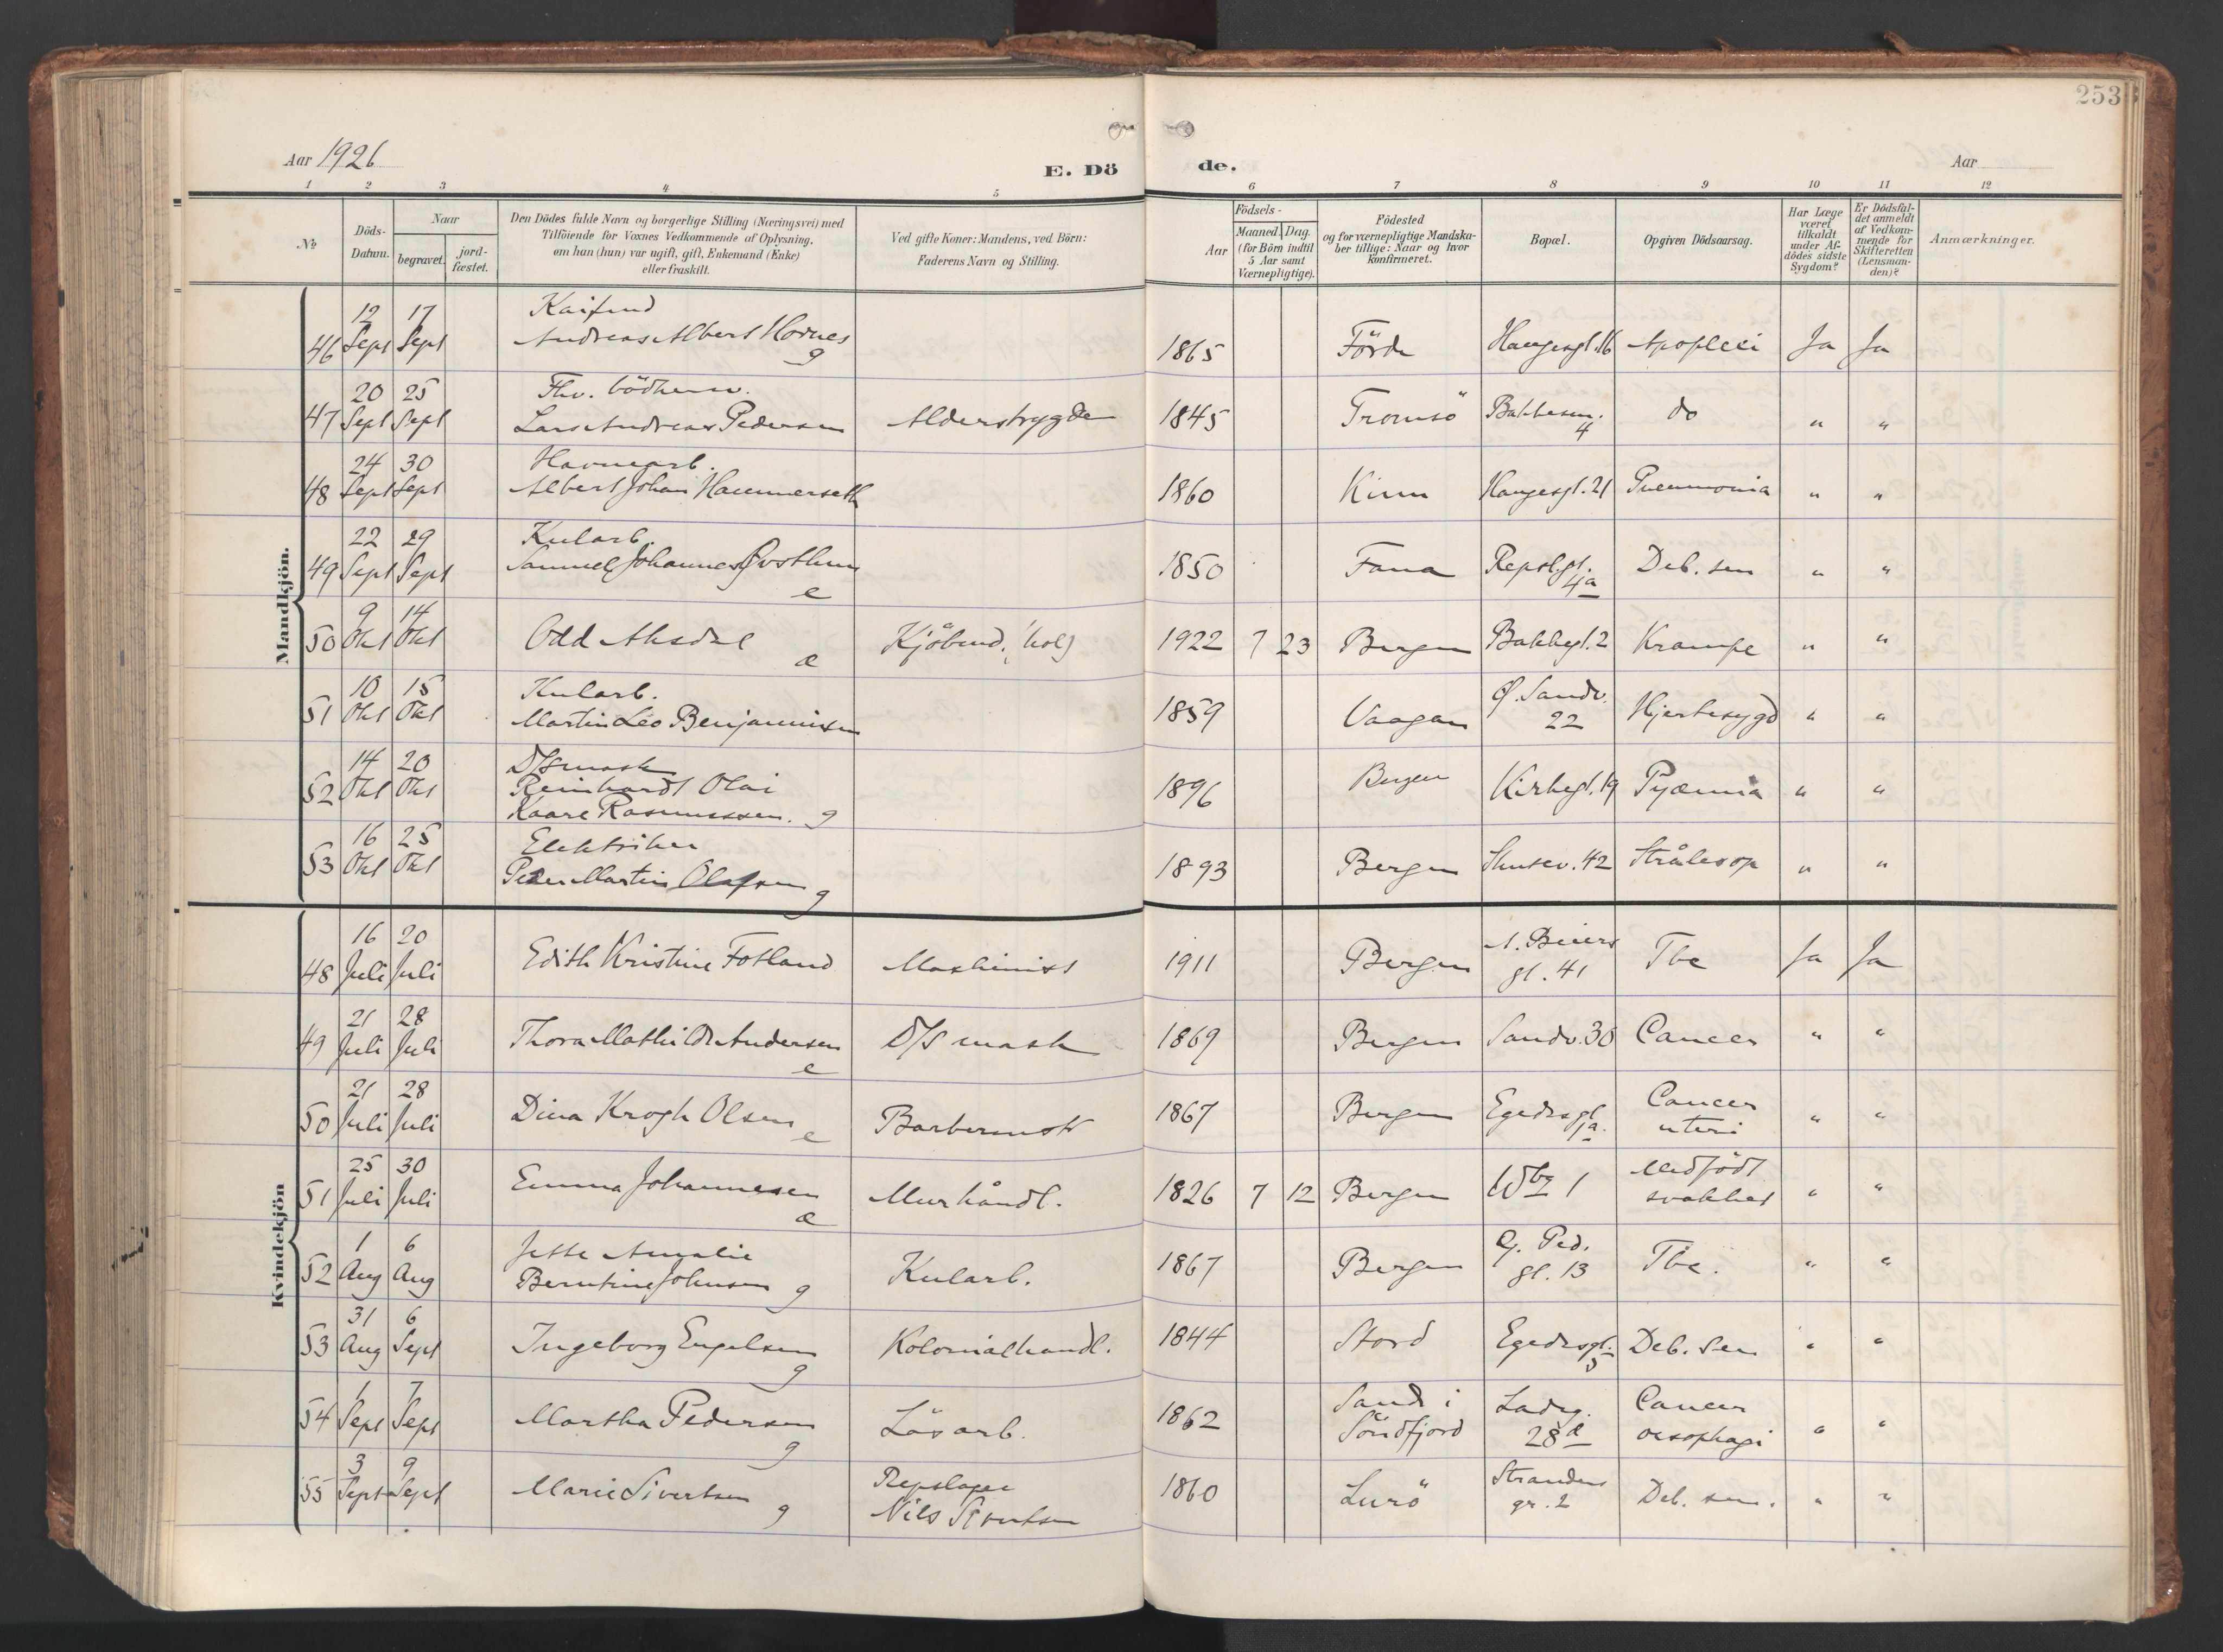 253
Aar 1926
E. Döde.
Aar
1 2 3 4 5 6 7 8 9 10 11 12
№
Döds-Datum.
Naar
begravet.
jord-fæstet.
Den Dödes fulde Navn og borgerlige Stilling (Næringsvei) med
Tilföiende for Voxnes Vedkommende af Oplysning,
om han (hun) var ugift, gift, Enkemand (Enke)
eller fraskilt.
Ved gifte Koner: Mandens, ved Börn:
Faderens Navn og Stilling.
Födsels-
Aar
Maaned. Dag.
(for Börn indtil
5 Aar samt
Værnepligtige).
Födested
og for værnepligtige Mandska-
ber tillige: Naar og hvor
konfirmeret.
Bopæl.
Opgiven Dödsaarsag.
Har Læge
været
tilkaldt
under Af-
dödes sidste
Sygdom?
Er Dödsfal-
det anmeldt
af Vedkom-
mende for
Skifteretten
(Lensman-
den)?
Anmærkninger.
Mandkjön.
46 12 Sept 17 Sept
Andreas Albert Hornes g
1865 Förde Haugesgt. 16 Apoplexi Ja Ja
47 20 Sept 25 Sept
Fhv.
Lars Andreas Pedersen Alderstrygde 1845 Tromsö 4 do " "
48 24 Sept 30 Sept
Havnearb.
Albert Johan Hammerseth 1860 Kinn Haugesgt. 21 Pneumonia " "
49 22 Sept 29 Sept
Kularb.
Samuel Johannes e 1850 Fana Repslgt. 4a Deb. sen " "
50 9 Okt 14 Okt
Odd Aksdal æ Kjöbmd. (kol) 1922 7 23 Bergen Bakkegt. 2 Krampe " "
51 10 Okt 15 Okt
Kularb.
Martin Leo Benjaminsen 1859 Vaagan Ø. Sandv. 22 Hjertesygd " "
52 14 Okt 20 Okt
D/S mask
Reinhardt Olai
Kaare Rasmussen. g 1896 Bergen Kirkegt. 19 Pyæmia " "
53 16 Okt 25 Okt
Elektriker
Peder Martin Olafsen g 1893 Bergen Skutev. 42 Strålesop " "
Kvindekjön
48 16 Juli 20 Juli Edith Kristine Fotland Maskinist 1911 Bergen A. Beiers gt. 41 Tbc Ja Ja
49 21 Juli 28 Juli Thora Mathilde Andersen e D/S mask 1869 Bergen Sandv. 30 Cancer " "
50 21 Juli 28 Juli Dina Krogh Olsen e Barbermstr 1867 Bergen Egedesgt 1a. Cancer uteri " "
51 25 Juli 30 Juli Emma Johannesen æ Murhåndl. 1826 7 12 Bergen 1 Medfödt svakhet " "
52 1 Aug 6 Aug
Jette Amalie
Berntine Johnsen g Kularb. 1867 Bergen Ø. Ped. gt. 13 Tbc. " "
53 31 Aug 6 Sept Ingeborg Engelsen g Kolonialhandl. 1844 Stord Egedesgt. 5 Deb. Sen " "
54 1 Sept 7 Sept Martha Pedersen g Lösarb. 1862 Sande i Söndfjord Ladeg. 28d Cancer oesophagi " "
55 3 Sept 9 Sept Marie Sivertsen g Repslager
Nils Sivertsen 1860 Lurö Strandens gr. 2 Deb. sen. " "